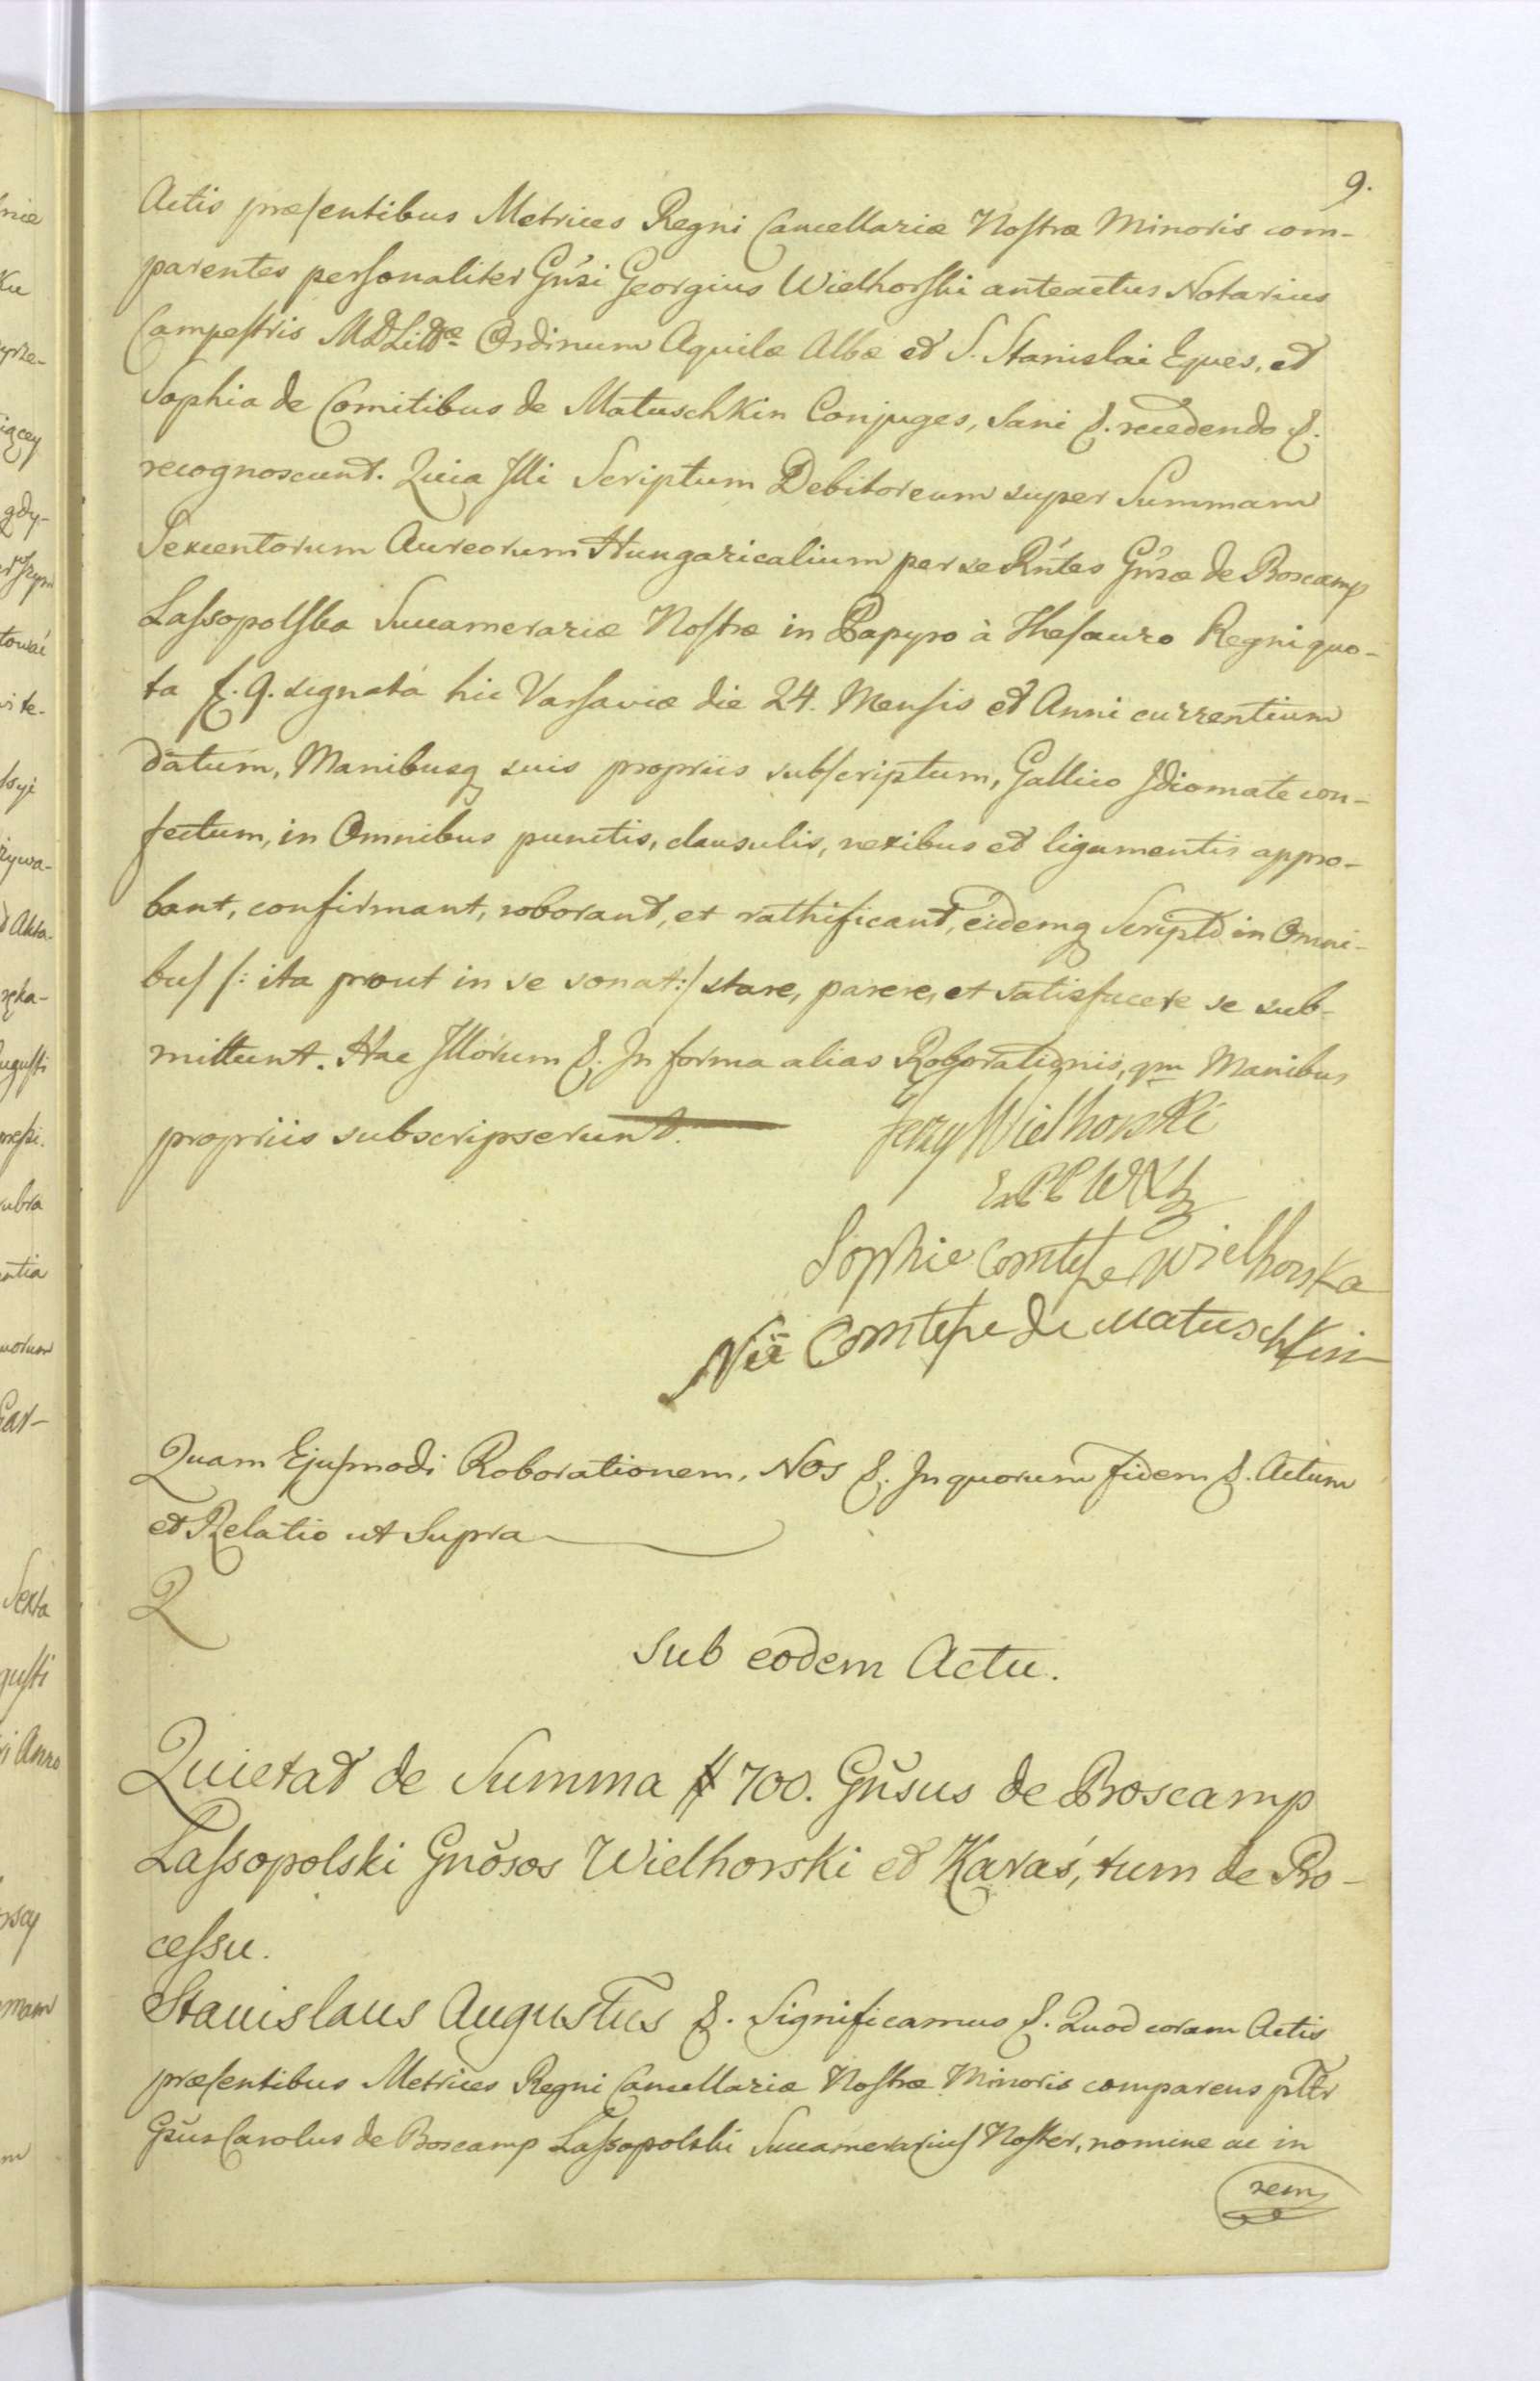 9.
Actis præsentibus Metrices Regni Cancellariæ Nostræ Minoris com-
parentes personaliter Gn̄si Georgius Wielhorski anteactus Notarius
Campestris MDLittæ Ordinum Aquilæ Albæ et S. Stanislai Eques, et
Sophia de Comitibus de Matuschkin Conjuges, Sani &. recedendo &.
recognoscunt. Quia Illi Scriptum Debitoreum super Summam
Sexcentorum Aureorum Hungaricalium per se Rn̄tes Gn̄sæ de Boscamp
Lassopolska Succamerariæ Nostræ in Papyro à Thesauro Regni quo-
ta f. 9. signatá hic Varsaviæ die 24. Mensis et Anni currentium
datum, Manibusq suis propriis subscriptum, Gallico Idiomate con-
fectum, in Omnibus punctis, clausulis, nexibus et ligamentis appro-
bant, confirmant, roborant, et rathificant, eidemq Scripto in Omni-
bus /: ita prout in se sonat :/ stare, parere, et satisfacere se sub-
mittunt. Hac Illorum &. In forma alias Roborationis, qm Manibus
propriis subscripserunt.
Jerzy Wielhorski
Sophie Comtesse Wielhorska
Née Comtesse de Matuschkin
Quam Ejusmodi Roborationem, Nos &. In quorum fidem &. Actum
et Relatio ut Supra
Sub eodem Actu.
Quietat de Summa # 700. Gn̄sus de Boscamp
Lassopolski Gn̄osos Wielhorski et Karaś, tum de Pro-
cessu.
Stanislaus Augustus &. Significamus &. Quod coram Actis
præsentibus Metrices Regni Cancellariæ Nostræ Minoris comparens pltr
Gsus Carolus de Boscamp Lassopolski Succamerarius Noster, nomine ac in
rem